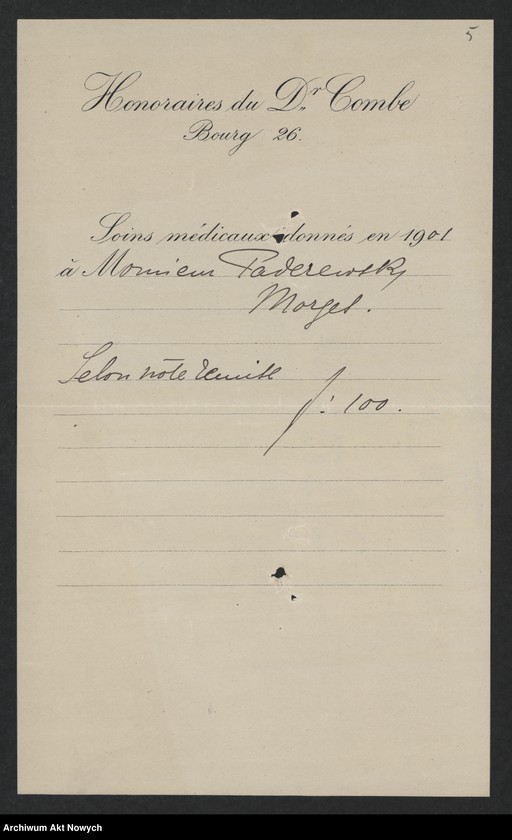 5
Honoraires du Dr Combe
Bourg 26.
Soins médicaux donnés en 1901
à Monsieur Paderewsky
Morges.
Selon note remise
f: 100.
Archiwum Akt Nowych